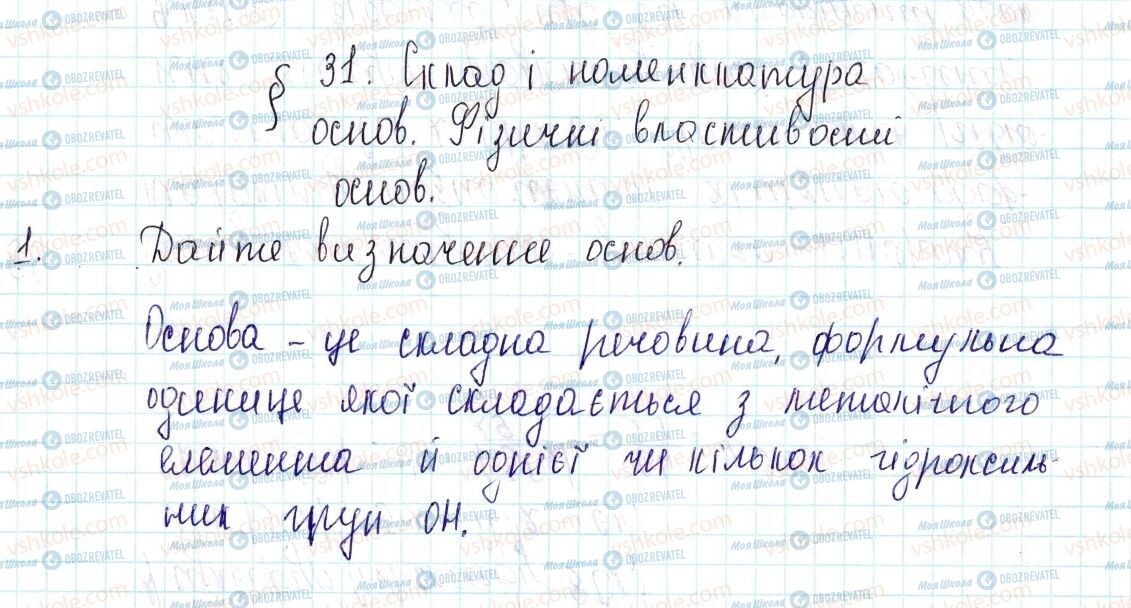 § 31. Склад і номенклатура
основ. Фізичні властивості
основ.
1. Дайте визначення основ.
Основа – це складна речовина, формульна
одиниця якої складається з металічного
елемента й однієї чи кількох гідроксиль-
них груп ОН.